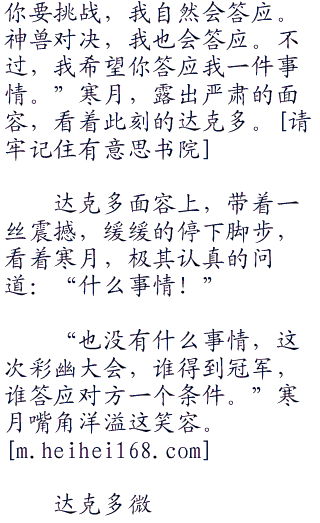 你要挑战，我自然会答应。
神兽对决，我也会答应。不
过，我希望你答应我一件事
情。”寒月，露出严肃的面
容，看着此刻的达克多。[请
牢记住有意思书院]
达克多面容上，带着一
丝震撼，缓缓的停下脚步，
看着寒月，极其认真的问
道：“什么事情！”
“也没有什么事情，这
次彩幽大会，谁得到冠军，
谁答应对方一个条件。”寒
月嘴角洋溢这笑容。
[m.heihei168.com]
达克多微